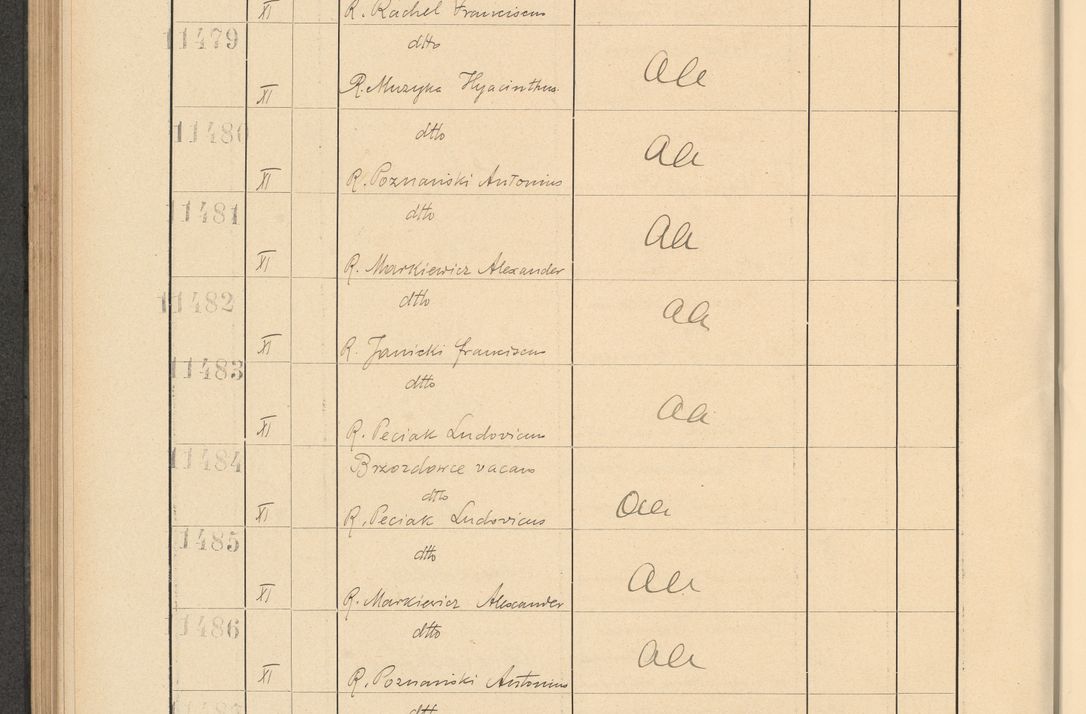 XI R. Rachel Franciscus
11479
dtto
XI R. Muzyka Hyacinthus aa
11480
dtto
XI R. Poznański Antonius aa
11481
dtto
XI R. Markiewicz Alexander aa
11482
dtto
XI R. Janicki Franciscus aa
11483
dtto
XI R. Peciak Ludovicus aa
11484
Brzozdowce vacans
dtto
XI R. Peciak Ludovicus aa
11485
dtto
XI R. Markiewicz Alexander aa
11486
dtto
XI R. Poznański Antonius aa
dtto